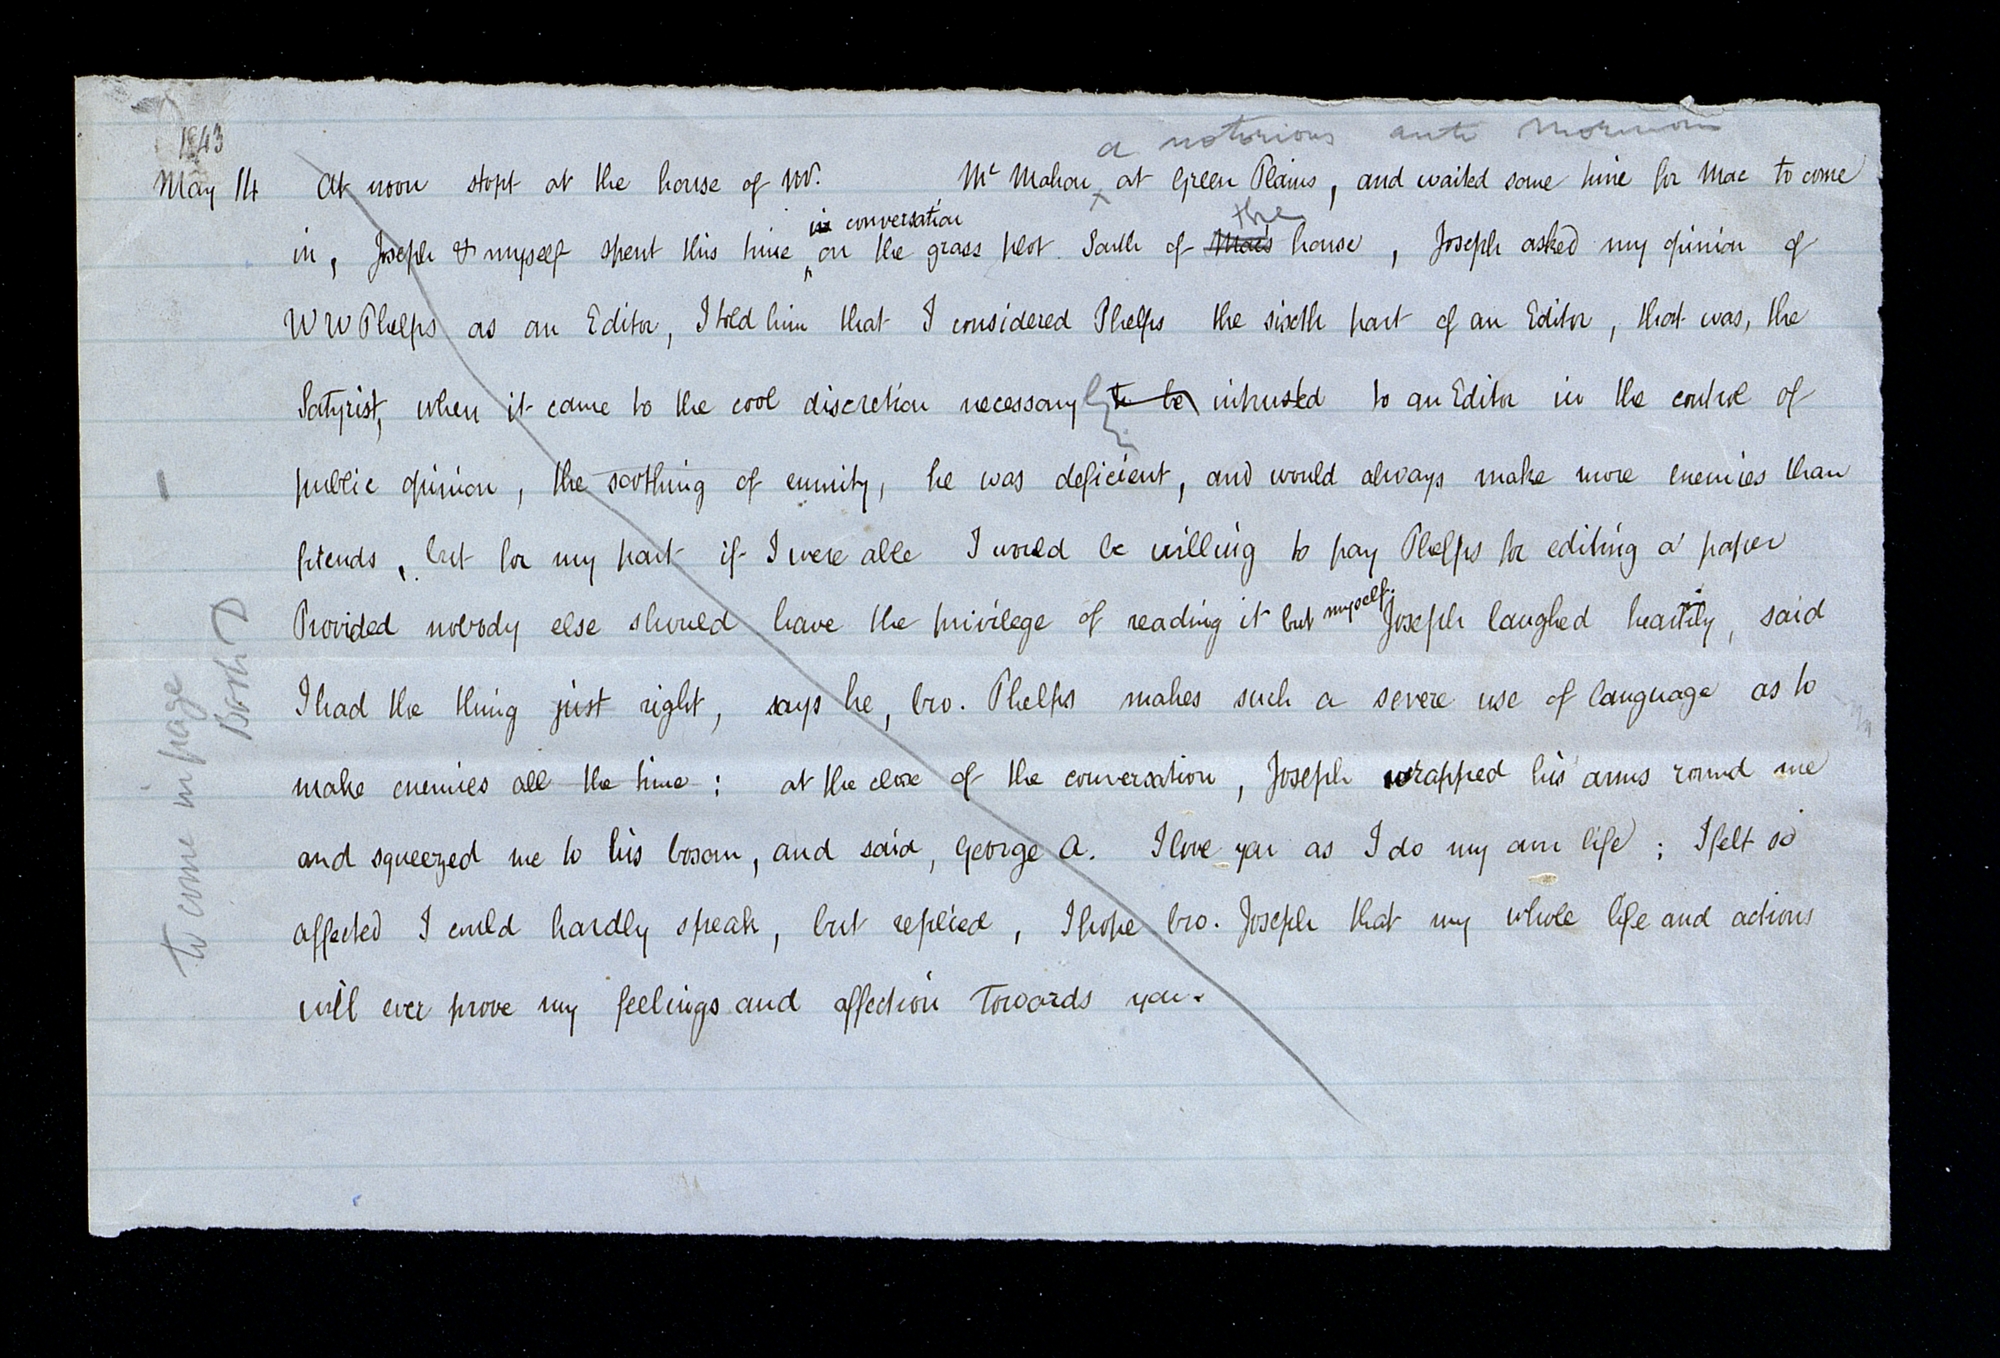 1843
a notorious anti mormon
May 14 At noon stopt at the house of Mr. Mc Mahon at Green Plains, and waited some time for Mac to come
in conversation the
in, Joseph & myself spent this time on the grass plot South of Mac's house, Joseph asked my opinion of
W W Phelps as an Editor, I told him that I considered Phelps the sixth part of an Editor, that was, the
Satyrist, when it came to the cool discretion necessary to be intrusted to an Editor in the control of
public opinion, the soothing of enmity, he was deficient, and would always make more enemies than
friends, but for my part if I were able I would be willing to pay Phelps for editing a paper
Provided nobody else should have the privilege of reading it but myself. Joseph laughed heartily, said
I had the thing just right, says he, bro. Phelps makes such a severe use of language as to
make enemies all the time: at the close of the conversation, Joseph wrapped his arms round me
and squeezed me to his bosom, and said, George A. I love you as I do my own life; I felt so
affected I could hardly speak, but replied, I hope bro. Joseph that my whole life and actions
will ever prove my feelings and affection Towards you.
to come in page
Book D